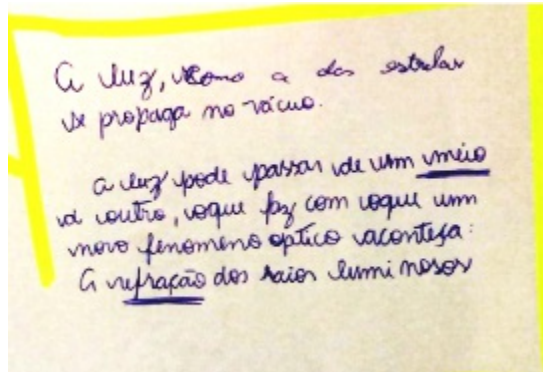 A luz, como a das estrelas
se propaga no vácuo.
A luz pode passar de um meio
a outro, o que faz com o que um
novo fenomeno optico aconteça:
A refração dos raios luminosos